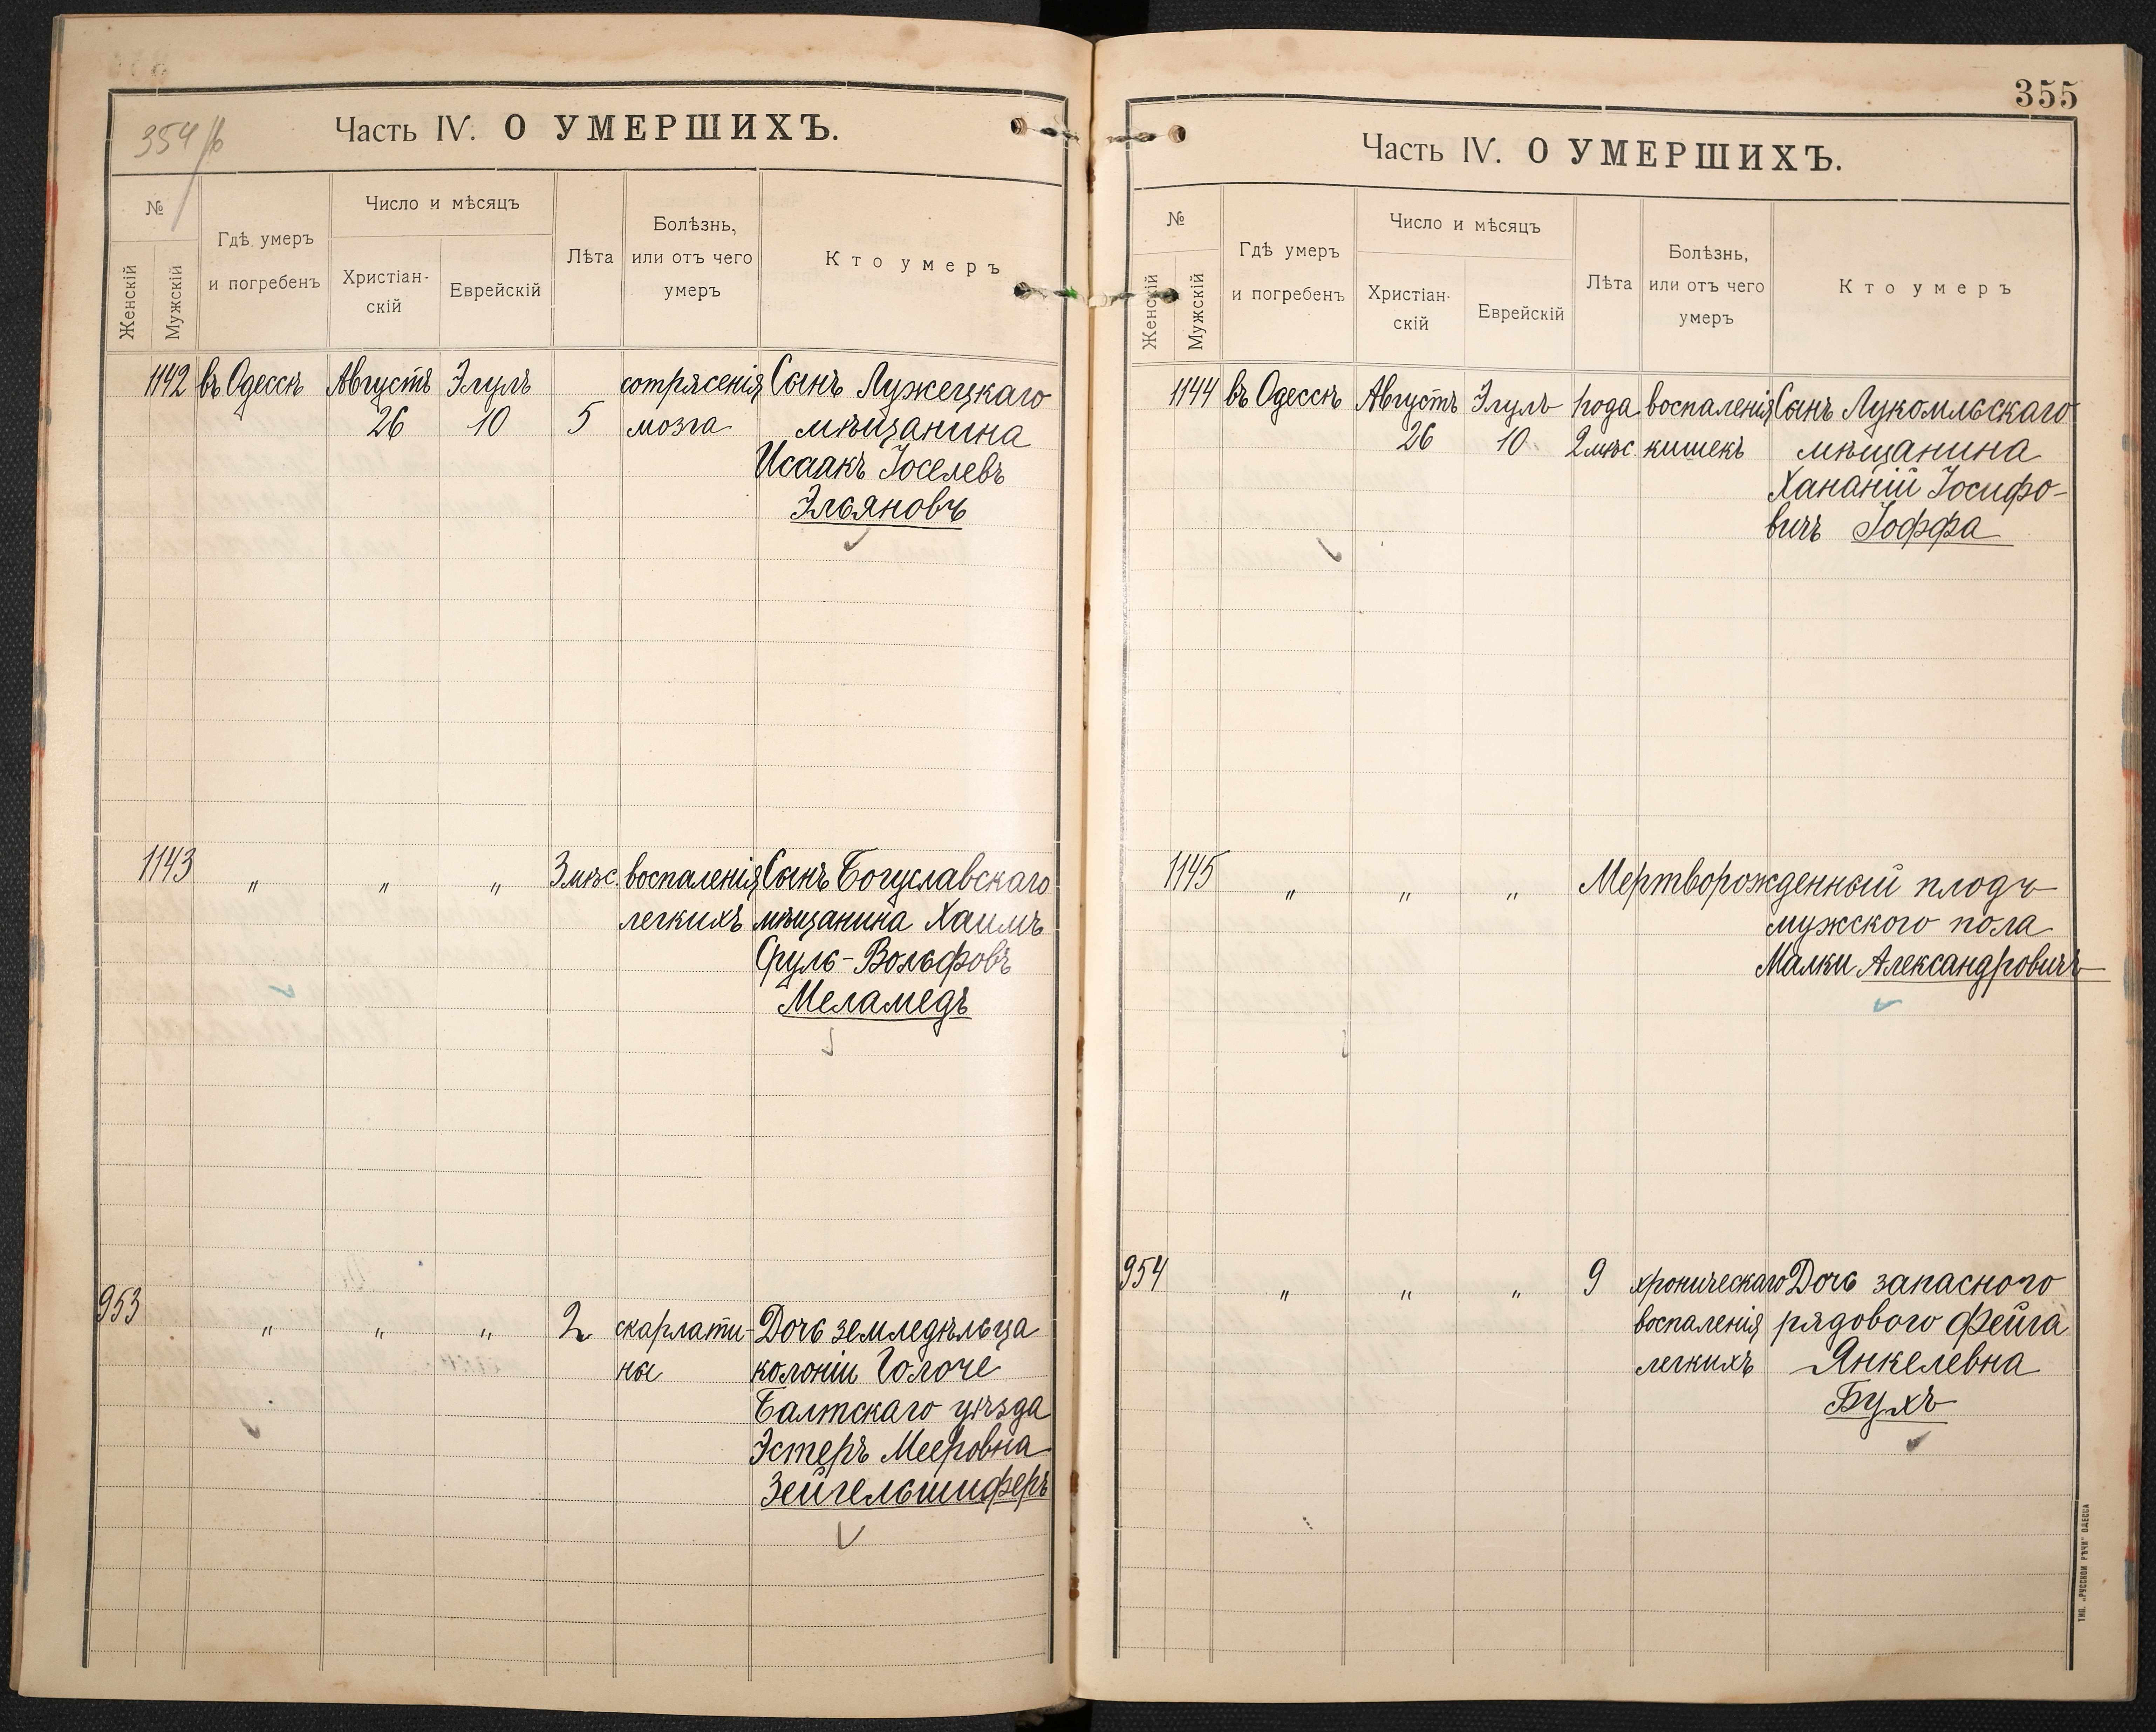 354/б
Часть IV. О УМЕРШИХЪ.
№
Женскій
Мужскій
Гдѣ умеръ
и погребенъ
Число и мѣсяцъ
Христіан-
скій
Еврейскій
Лѣта
Болѣзнь,
или отъ чего
умеръ
Кто умеръ
1142 въ Одессѣ Августъ Элулъ сотрясенія Сынъ Лужецкаго
26 10 5 мозга мѣщанина
Исаакъ Іоселевъ
Эльяновъ
1143 " " " 3 мѣс. воспаленія Сынъ Богуславскаго
легкихъ мѣщанина Хаимъ
Сруль-Вольфовъ
Меламедъ
953 " " " 2 скарлати- Дочь земледѣльца
ны колоніи Голоче
Балтскаго уѣзда
Эстеръ Мееровна
Зейгельшиферъ
355
Часть IV. О УМЕРШИХЪ.
№
Женскій
Мужскій
Гдѣ умеръ
и погребенъ
Число и мѣсяцъ
Христіан-
скій
Еврейскій
Лѣта
Болѣзнь,
или отъ чего
умеръ
Кто умеръ
1144 въ Одессѣ Августъ Элулъ 1 года воспаленія Сынъ Лукомльскаго
26 10 2 мѣс. кишекъ мѣщанина
Хананій Іосифо-
вичъ Іоффа
1145 " " " Мертворожденный плодъ
мужского пола
Малки Александровичъ
954 " " " 9 хроническаго Дочь запасного
воспаленія рядового Фейга
легкихъ Янкелевна
Бухъ
ТИП. „РУССКОЙ РѢЧИ" ОДЕССА